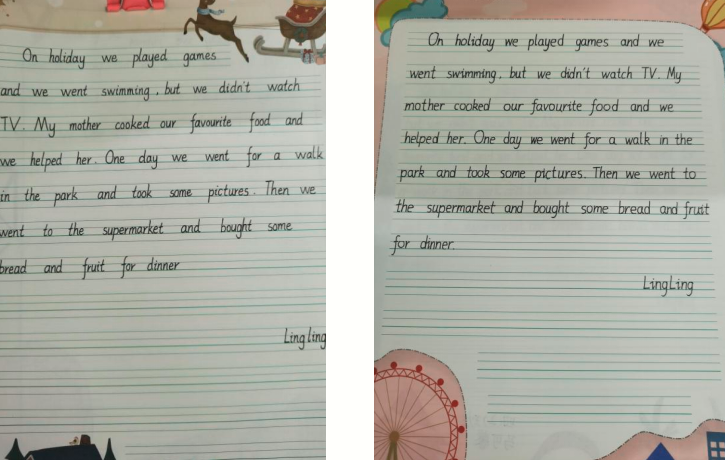 On holiday we played games
and we went swimming, but we didn't watch
TV. My mother cooked our favourite food and
we helped her. One day we went for a walk
in the park and took some pictures. Then we
went to the supermarket and bought some
bread and fruit for dinner
Lingling
On holiday we played games and we
went swimming, but we didn't watch TV. My
mother cooked our favourite food and we
helped her. One day we went for a walk in the
park and took some pictures. Then we went to
the supermarket and bought some bread and fruit
for dinner.
LingLing